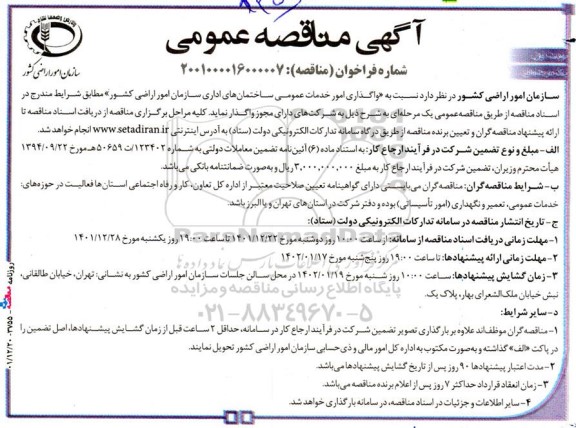 سازمان امور اراضی کشور
آگهی مناقصه عمومی
شماره فراخوان (مناقصه): ۲۰۰۱۰۰۰۰۱۶۰۰۰۰۰۷
سازمان امور اراضی کشور در نظر دارد نسبت به «واگذاری امور خدمات عمومی ساختمان‌های اداری سازمان امور اراضی کشور» مطابق شرایط مندرج در
اسناد مناقصه از طریق مناقصه عمومی یک مرحله‌ای به شرح ذیل به شرکت‌های دارای مجوز واگذار نماید. کلیه مراحل برگزاری مناقصه از دریافت اسناد مناقصه تا
ارائه پیشنهاد مناقصه‌گران و تعیین برنده مناقصه از طریق درگاه سامانه تدارکات الکترونیکی دولت (ستاد) به آدرس اینترنتی www.setadiran.ir انجام خواهد شد.
الف- مبلغ و نوع تضمین شرکت در فرآیند ارجاع کار: به استناد ماده (۶) آئین‌نامه تضمین معاملات دولتی به شماره ۱۲۳۴۰۲/ت۵۰۶۵۹هـ مورخ ۱۳۹۴/۰۹/۲۲
هیأت محترم وزیران، تضمین شرکت در فرآیند ارجاع کار به مبلغ ۳,۰۰۰,۰۰۰,۰۰۰ ریال و به‌صورت ضمانتنامه بانکی می‌باشد.
ب- شرایط مناقصه‌گران: مناقصه‌گران می‌بایستی دارای گواهینامه تعیین صلاحیت معتبر از اداره کل تعاون، کار و رفاه اجتماعی استان‌ها فعالیت در حوزه‌های:
خدمات عمومی، تعمیر و نگهداری (امور تأسیساتی) بوده و دفتر شرکت در استان‌های تهران و یا البرز باشد.
ج- تاریخ انتشار مناقصه در سامانه تدارکات الکترونیکی دولت (ستاد):
۱- مهلت زمانی دریافت اسناد مناقصه از سامانه: از ساعت ۱۰:۰۰ روز دوشنبه مورخ ۱۴۰۱/۱۲/۲۲ تا ساعت ۱۹:۰۰ روز یکشنبه مورخ ۱۴۰۱/۱۲/۲۸
۲- مهلت زمانی ارائه پیشنهادها: تا ساعت ۱۹:۰۰ روز پنج‌شنبه مورخ ۱۴۰۲/۰۱/۱۷
۳- زمان گشایش پیشنهادها: ساعت ۱۰:۰۰ روز شنبه مورخ ۱۴۰۲/۰۱/۱۹ در محل سالن جلسات سازمان امور اراضی کشور به نشانی: تهران، خیابان طالقانی،
نبش خیابان ملک‌الشعرای بهار، پلاک یک.
د- سایر شرایط:
۱- مناقصه‌گران موظف‌اند علاوه بر بارگذاری تصویر تضمین شرکت در فرآیند ارجاع کار در سامانه، حداقل ۲ ساعت قبل از زمان گشایش پیشنهادها، اصل تضمین را
در پاکت «الف» گذاشته و به‌صورت مکتوب به اداره کل امور مالی و ذی‌حسابی سازمان امور اراضی کشور تحویل نمایند.
۲- مدت اعتبار پیشنهادها ۹۰ روز پس از تاریخ گشایش پیشنهادها می‌باشد.
۳- زمان انعقاد قرارداد حداکثر ۷ روز پس از اعلام برنده مناقصه می‌باشد.
۴- سایر اطلاعات و جزئیات در اسناد مناقصه، در سامانه بارگذاری خواهد شد.
ParsNamadData
پایگاه اطلاع رسانی مناقصه و مزایده
۰۲۱-۸۸۳۴۹۶۷۰-۵